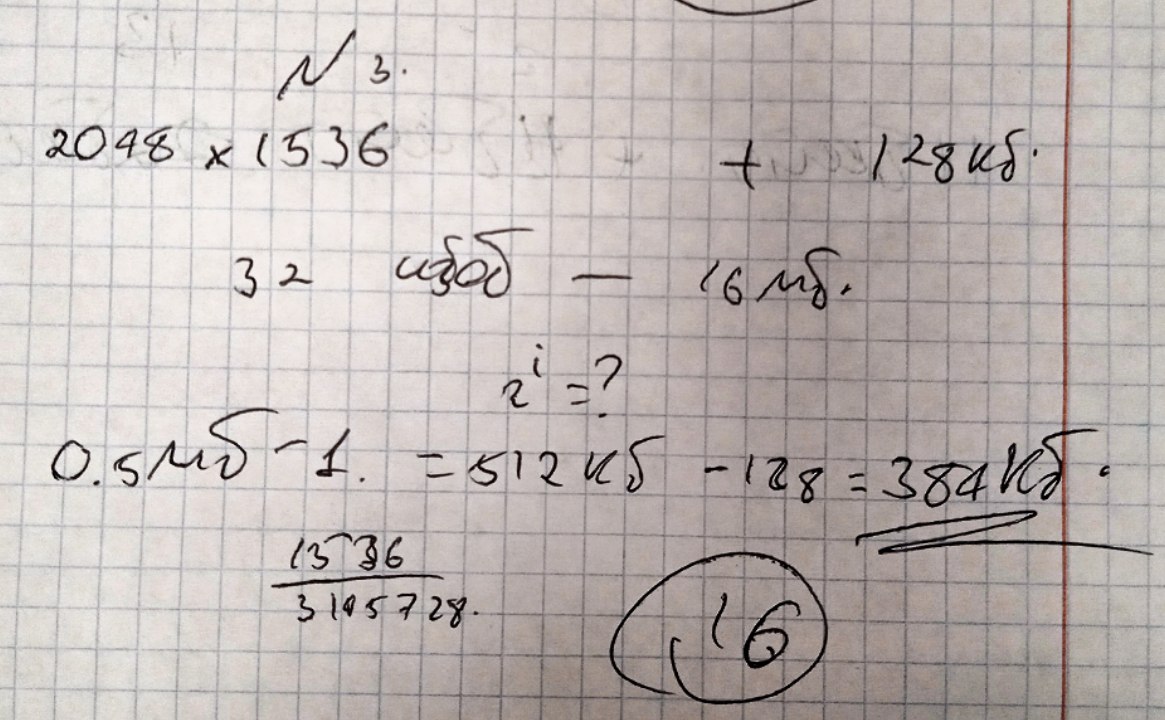 N 3.
2048 x 1536 + 128 кб.
32 изоб — 16 мб.
2^i = ?
0.5 мб - 1. = 512 кб - 128 = 384 Кб.
1536
3145728.
16